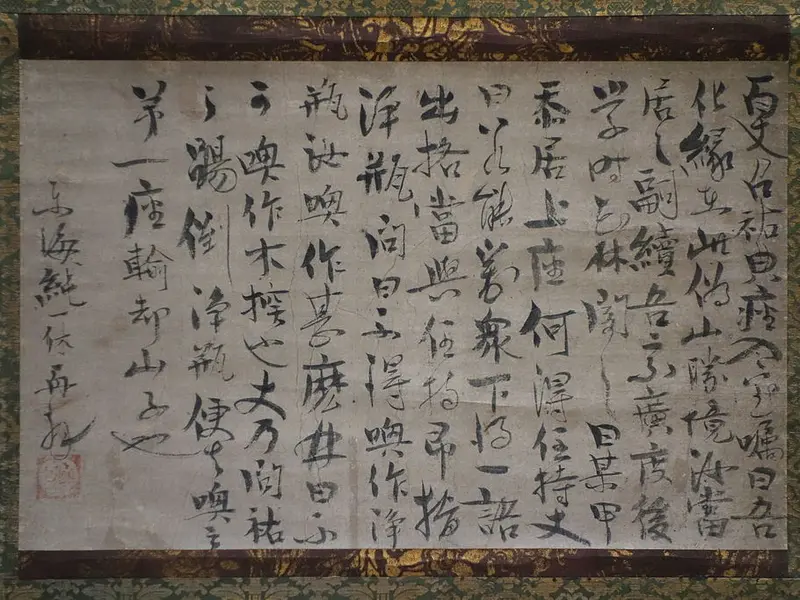 百丈召祐典座入室囑曰吾
化緣在此溈山勝境汝當
居之嗣續吾宗廣度後
学時花林聞之曰某甲
忝居上座何得住持丈
曰若能對衆下得一語
出格當與住持即指
淨瓶問曰不得喚作淨
瓶汝喚作甚麼林曰不
可喚作木也丈乃問祐
々踢倒淨瓶便
第一座輸却山子也
東海純一休